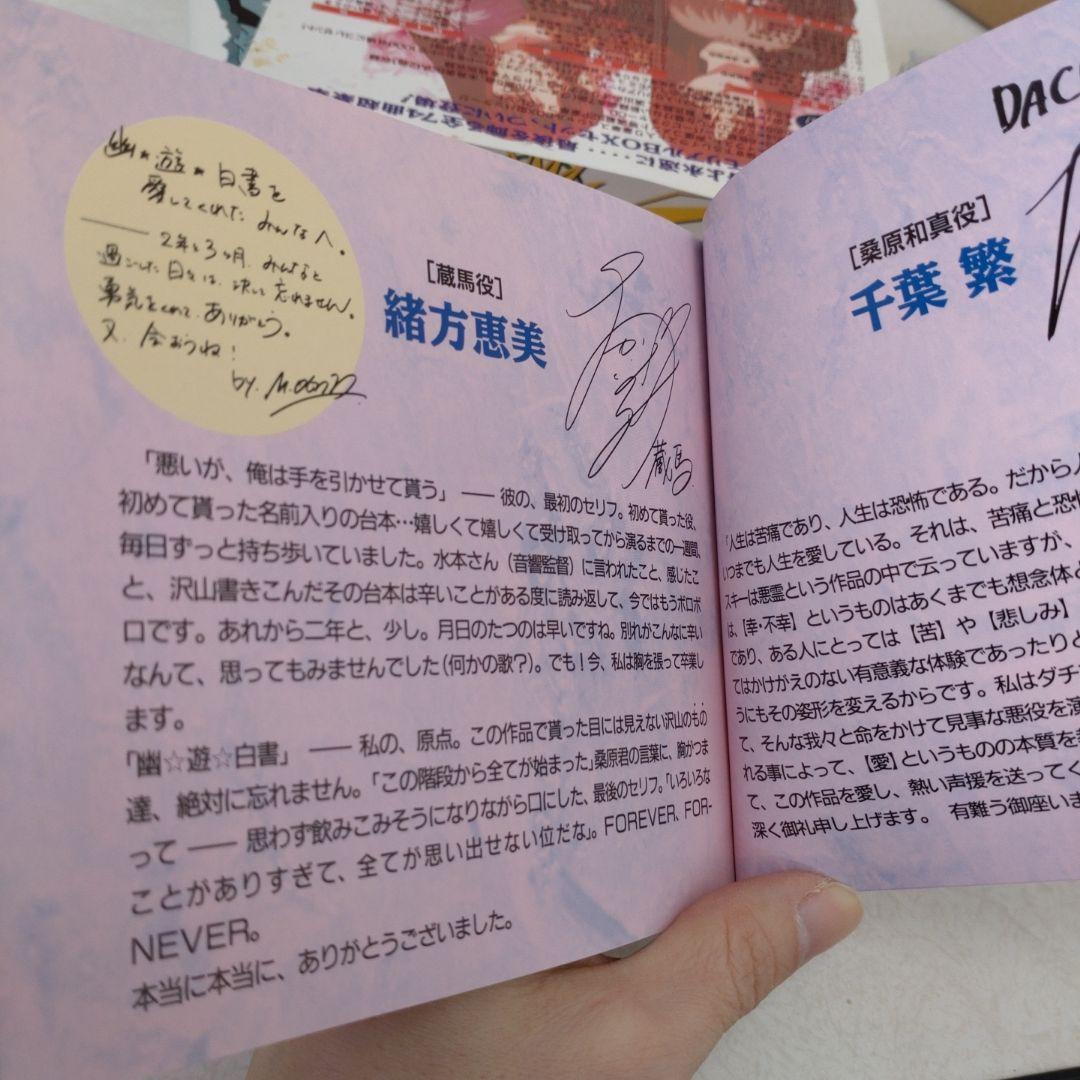 幽☆遊☆白書を
愛してくれた みんなへ。
—— 2年と3ヶ月、みんなと
過ごした日々は、決して忘れません。
勇気をこめて ありがとう。
又、会おうね!
by. M.
[蔵馬役]
緒方恵美
蔵馬
「悪いが、俺は手を引かせて貰う」—— 彼の、最初のセリフ。初めて貰った役、
初めて貰った名前入りの台本…嬉しくて嬉しくて受け取ってから演るまでの一週間、
毎日ずっと持ち歩いていました。水本さん(音響監督)に言われたこと、感じたこ
と、沢山書きこんだその台本は辛いことがある度に読み返して、今ではもうボロボ
ロです。あれから二年と、少し。月日のたつのは早いですね。別れがこんなに辛い
なんて、思ってもみませんでした(何かの歌?)。でも!今、私は胸を張って卒業し
ます。
「幽☆遊☆白書」—— 私の、原点。この作品で貰った目には見えない沢山のもの
達、絶対に忘れません。「この階段から全てが始まった」桑原君の言葉に、胸がつま
って —— 思わず飲みこみそうになりながら口にした、最後のセリフ。「いろいろな
ことがありすぎて、全てが思い出せない位だな」。FOREVER、FOR-
NEVER。
本当に本当に、ありがとうございました。
DAC
[桑原和真役]
千葉 繁
「人生は苦痛であり、人生は恐怖である。だから
いつまでも人生を愛している。それは、苦痛と恐
スキーは悪霊という作品の中で云っていますが、
は、【幸・不幸】というものはあくまでも想念体
であり、ある人にとっては【苦】や【悲しみ】
てはかけがえのない有意義な体験であったりと
うにもその姿形を変えるからです。私はダチ
て、そんな我々と命をかけて見事な悪役を演
れる事によって、【愛】というものの本質を
て、この作品を愛し、熱い声援を送ってく
深く御礼申し上げます。 有難う御座いま
上永遠に・・・・・最後を飾る全74曲超豪華
モリアルBOXセットついに登場!